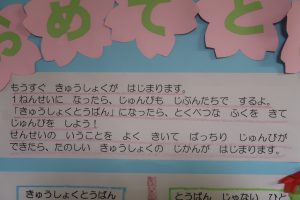 おめでと
もうすぐ きゅうしょくが はじまります。
1ねんせいに なったら、じゅんびも じぶんたちで するよ。
「きゅうしょくとうばん」になったら、とくべつな ふくを きて
じゅんびを しよう！
せんせいの いうことを よく きいて ばっちり じゅんびが
できたら、たのしい きゅうしょくの じかんが はじまります。
きゅうしょくとうばん
とうばん じゃない ひと